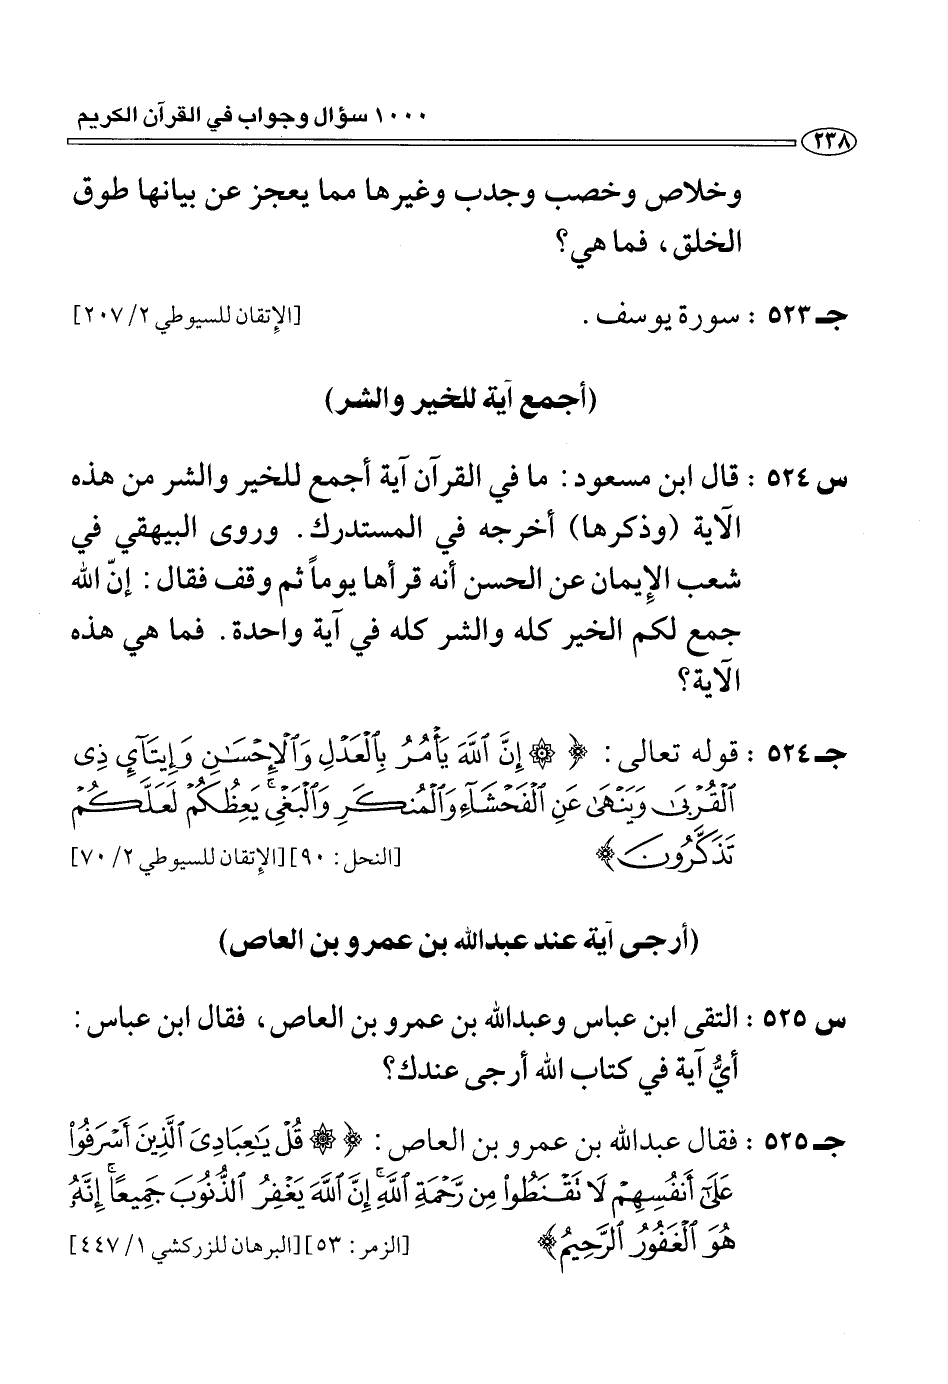 ١٠٠٠ سؤال وجواب في القرآن الكريم
٢٣٨
وخلاص وخصب وجدب وغيرها مما يعجز عن بيانها طوق
الخلق، فما هي؟
جـ ٥٢٣ : سورة يوسف. [الإتقان للسيوطي ٢/ ٢٠٧]
(أجمع آية للخير والشر)
س ٥٢٤ : قال ابن مسعود: ما في القرآن آية أجمع للخير والشر من هذه
الآية (وذكرها) أخرجه في المستدرك. وروى البيهقي في
شعب الإيمان عن الحسن أنه قرأها يوماً ثم وقف فقال: إنّ الله
جمع لكم الخير كله والشر كله في آية واحدة. فما هي هذه
الآية؟
جـ ٥٢٤ : قوله تعالى: ﴿ ۞ إِنَّ ٱللَّهَ يَأْمُرُ بِٱلْعَدْلِ وَٱلْإِحْسَٰنِ وَإِيتَآيِٕ ذِى
ٱلْقُرْبَىٰ وَيَنْهَىٰ عَنِ ٱلْفَحْشَآءِ وَٱلْمُنكَرِ وَٱلْبَغْىِ ۚ يَعِظُكُمْ لَعَلَّكُمْ
تَذَكَّرُونَ ﴾ [النحل: ٩٠][الإتقان للسيوطي ٢/ ٧٠]
(أرجى آية عند عبدالله بن عمرو بن العاص)
س ٥٢٥ : التقى ابن عباس وعبدالله بن عمرو بن العاص، فقال ابن عباس:
أيُّ آية في كتاب الله أرجى عندك؟
جـ ٥٢٥ : فقال عبدالله بن عمرو بن العاص: ﴿ ۞ قُلْ يَٰعِبَادِىَ ٱلَّذِينَ أَسْرَفُوا۟
عَلَىٰٓ أَنفُسِهِمْ لَا تَقْنَطُوا۟ مِن رَّحْمَةِ ٱللَّهِ ۚ إِنَّ ٱللَّهَ يَغْفِرُ ٱلذُّنُوبَ جَمِيعًا ۚ إِنَّهُۥ
هُوَ ٱلْغَفُورُ ٱلرَّحِيمُ ﴾ [الزمر: ٥٣][البرهان للزركشي ١/ ٤٤٧]